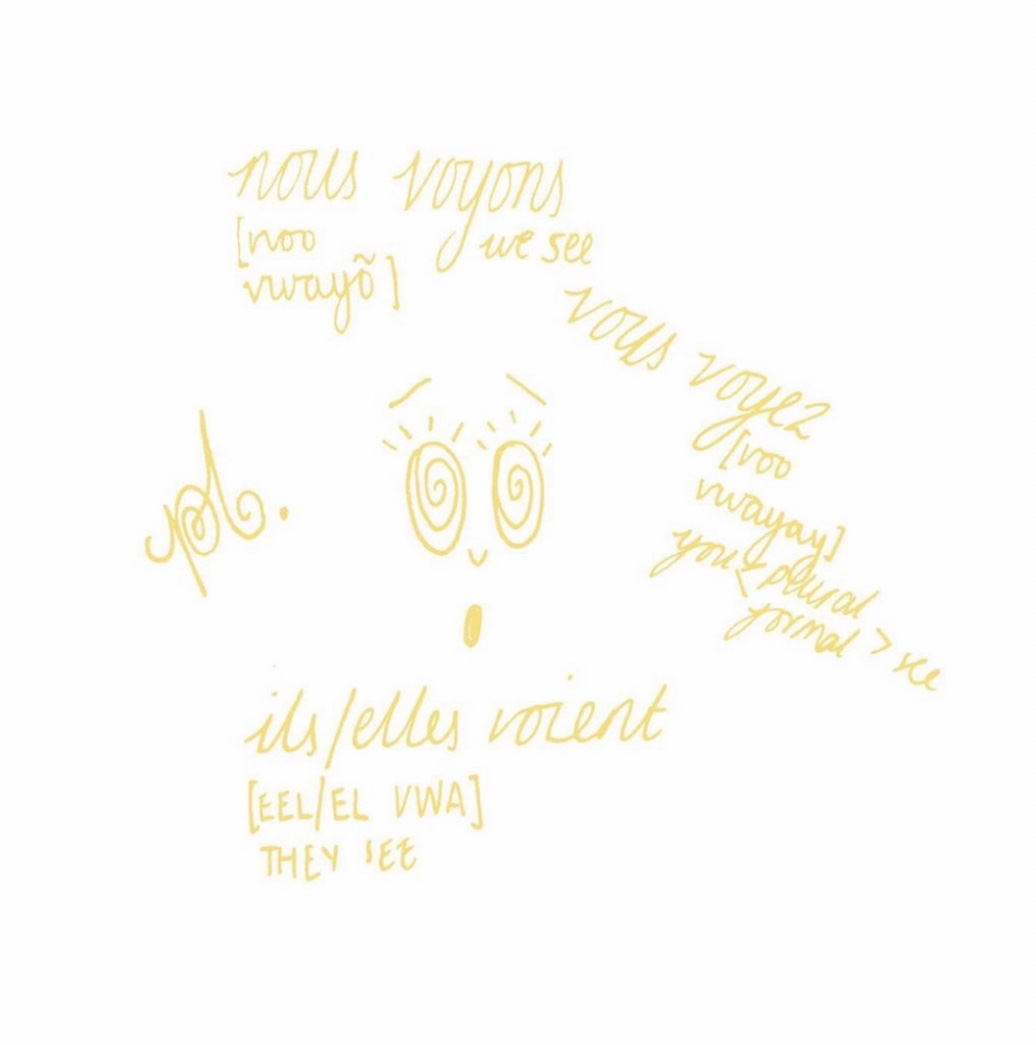 nous voyons
[noo
vwayõ]
we see
vous voyez
[voo
vwayay]
you < plural
formal > see
pl.
ils/elles voient
[EEL/EL VWA]
THEY SEE